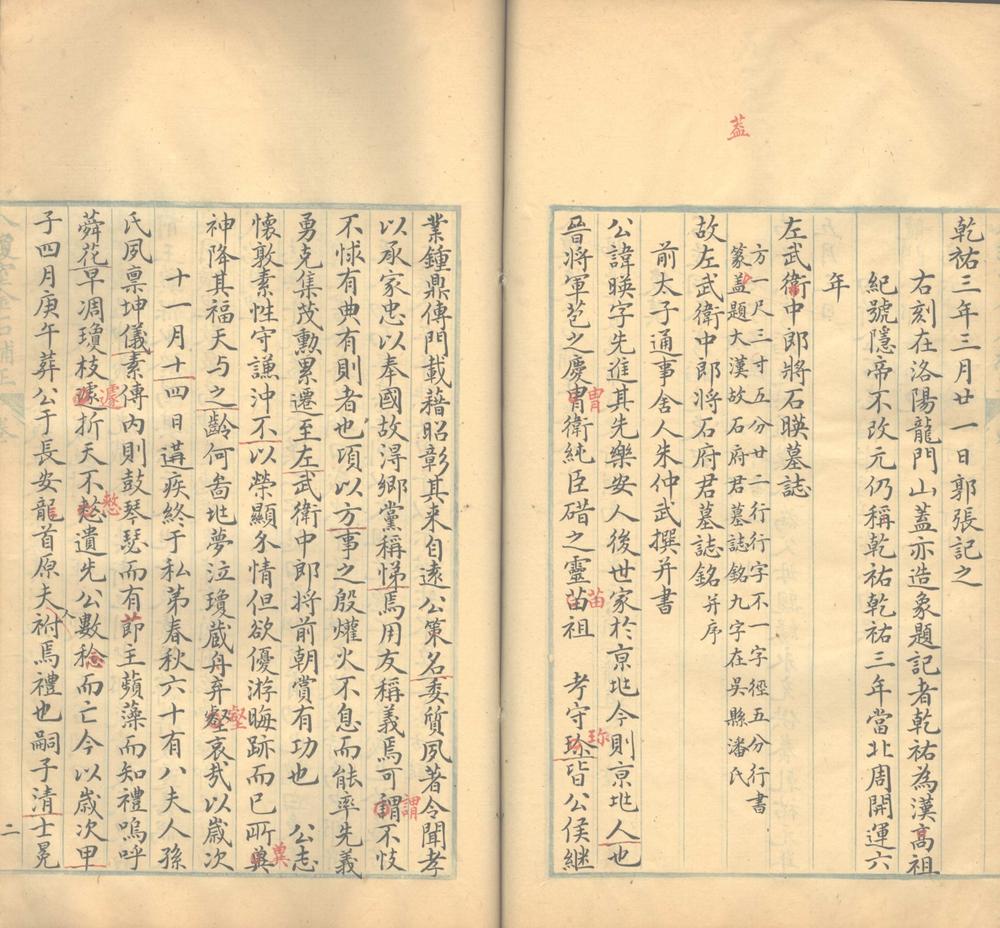 乾祐三年三月廿一日郭張記之
右刻在洛陽龍門山蓋亦造象題記者乾祐為漢高祖
紀號隱帝不改元仍稱乾祐乾祐三年當北周開運六
年
左武衛中郎將石暎墓誌
方一尺三寸五分廿二行行字不一字徑五分行書
篆蓋題大漢故石府君墓誌銘九字在吳縣潘氏
蓋
故左武衛中郎將石府君墓誌銘并序
前太子通事舍人朱仲武撰并書
公諱暎字先進其先樂安人後世家於京地今則京地人也
晉將軍苞之慶冑衛純臣碏之靈苗祖 考守珍皆公侯継
冑
苗
珎
業鍾鼎傳門載藉昭彰其来自遠公策名委質夙著令聞孝
以承家忠以奉國故淂鄉黨稱悌焉用友稱義焉可謂不忮
謂
不悚有典有則者也項以方事之殷爟火不息而能率先義
勇克集茂勳累遷至左武衛中郎将前朝賞有功也 公志
懷敦素性守謙沖不以榮顯夂情但欲優游晦跡而已所㒸
㒸
神降其福天与之齡何啚地夢泣瓊蔵舟弃壑哀哉以歲次
壑
十一月十四日遘疾終于私弟春秋六十有八夫人孫
氏夙禀坤儀素傳内則鼓琴瑟而有莭主蘋藻而知禮嗚呼
蕣花早凋瓊枝遽折天不憖遺先公數稔而亡今以歲次甲
遽
憖
子四月庚午葬公于長安龍首原夫祔焉禮也嗣子清士晃
人
二